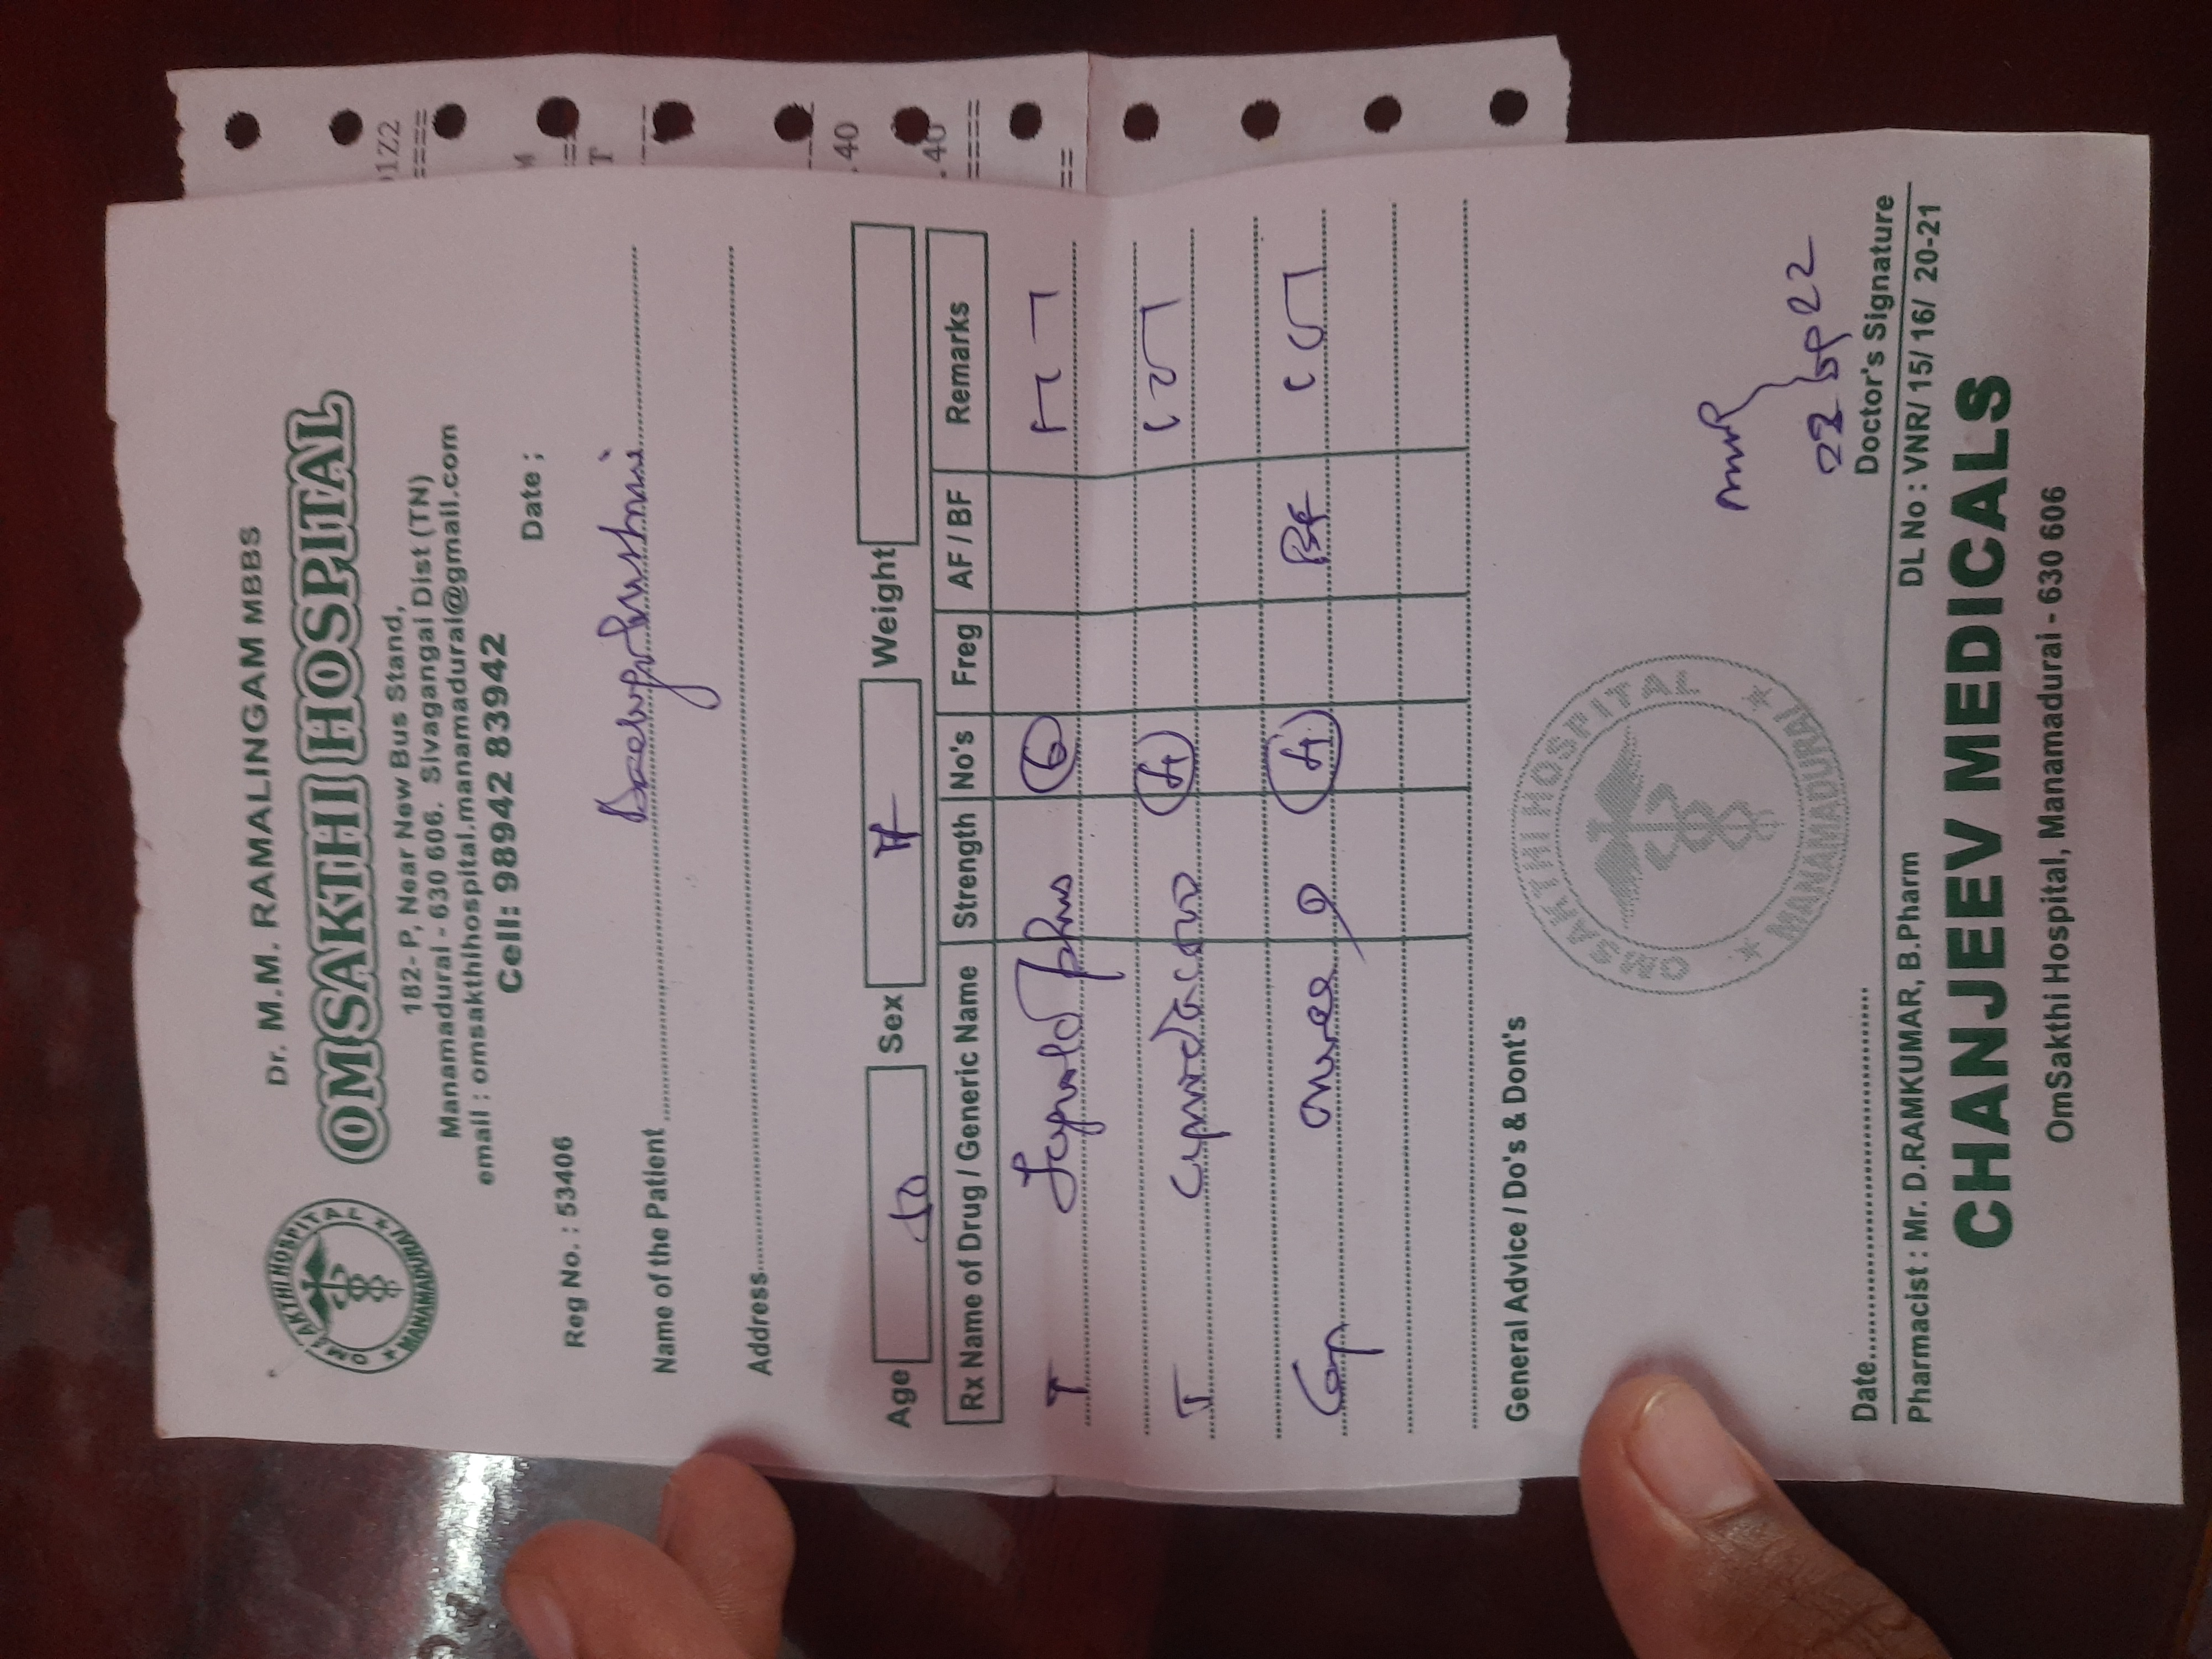 Dr. M.M. RAMALINGAM MBBS
OMSAKTHI HOSPITAL
OMSAKTHI HOSPITAL
★ MANAMADURAI ★
182- P, Near New Bus Stand,
Manamadurai - 630 606. Sivagangai Dist (TN)
email : omsakthihospital.manamadurai@gmail.com
Cell: 98942 83942
Date ;
Reg No. : 53406
Name of the Patient
Address
Age Sex F Weight
Rx Name of Drug / Generic Name Strength No's Freg AF / BF Remarks
T plus 6
T 4
Cap 4 BF
General Advice / Do's & Dont's
OMSAKTHI HOSPITAL
★ MANAMADURAI ★
22
Date
Doctor's Signature
Pharmacist : Mr. D.RAMKUMAR, B.Pharm DL No : VNR/ 15/ 16/ 20-21
CHANJEEV MEDICALS
OmSakthi Hospital, Manamadurai - 630 606
1Z2
M
T
.40
.40